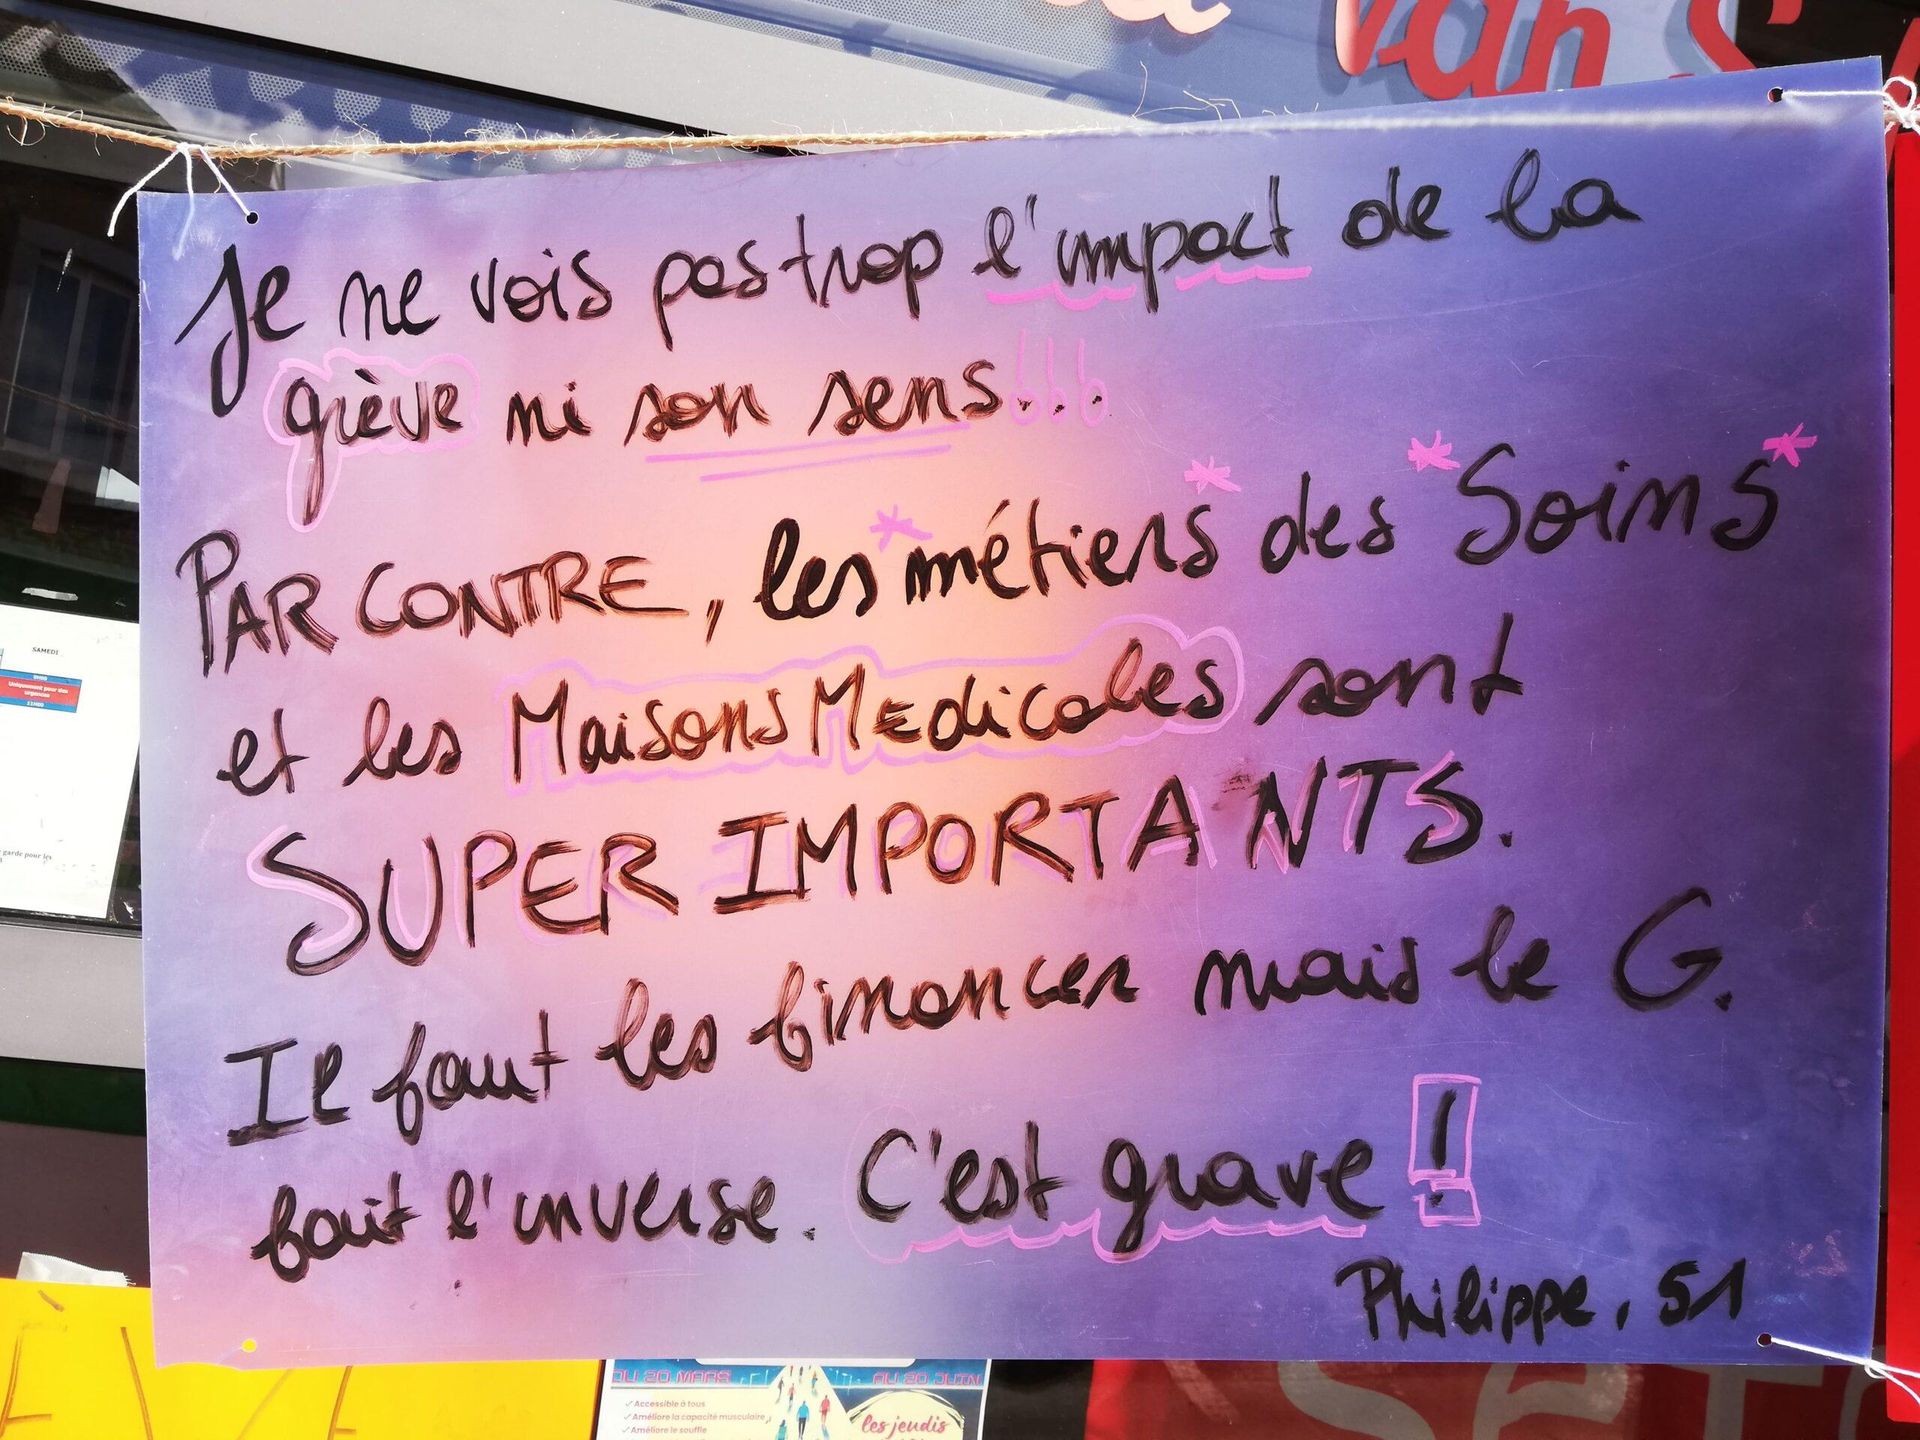 van S
Je ne vois pas trop l'impact de la
grève ni son sens...
PAR CONTRE, les "métiers" des "Soins"
et les Maisons Medicales sont
SUPER IMPORTANTS.
Il faut les financer mais le G.
fait l'inverse. C'est grave !
Philippe, 51
SAMEDI
9H00
Uniquement pour des
urgences
12H00
garde pour les
DU 20 MARS AU 20 JUIN
✓ Accessible à tous
✓ Améliore la capacité musculaire
✓ Améliore le souffle
les jeudis